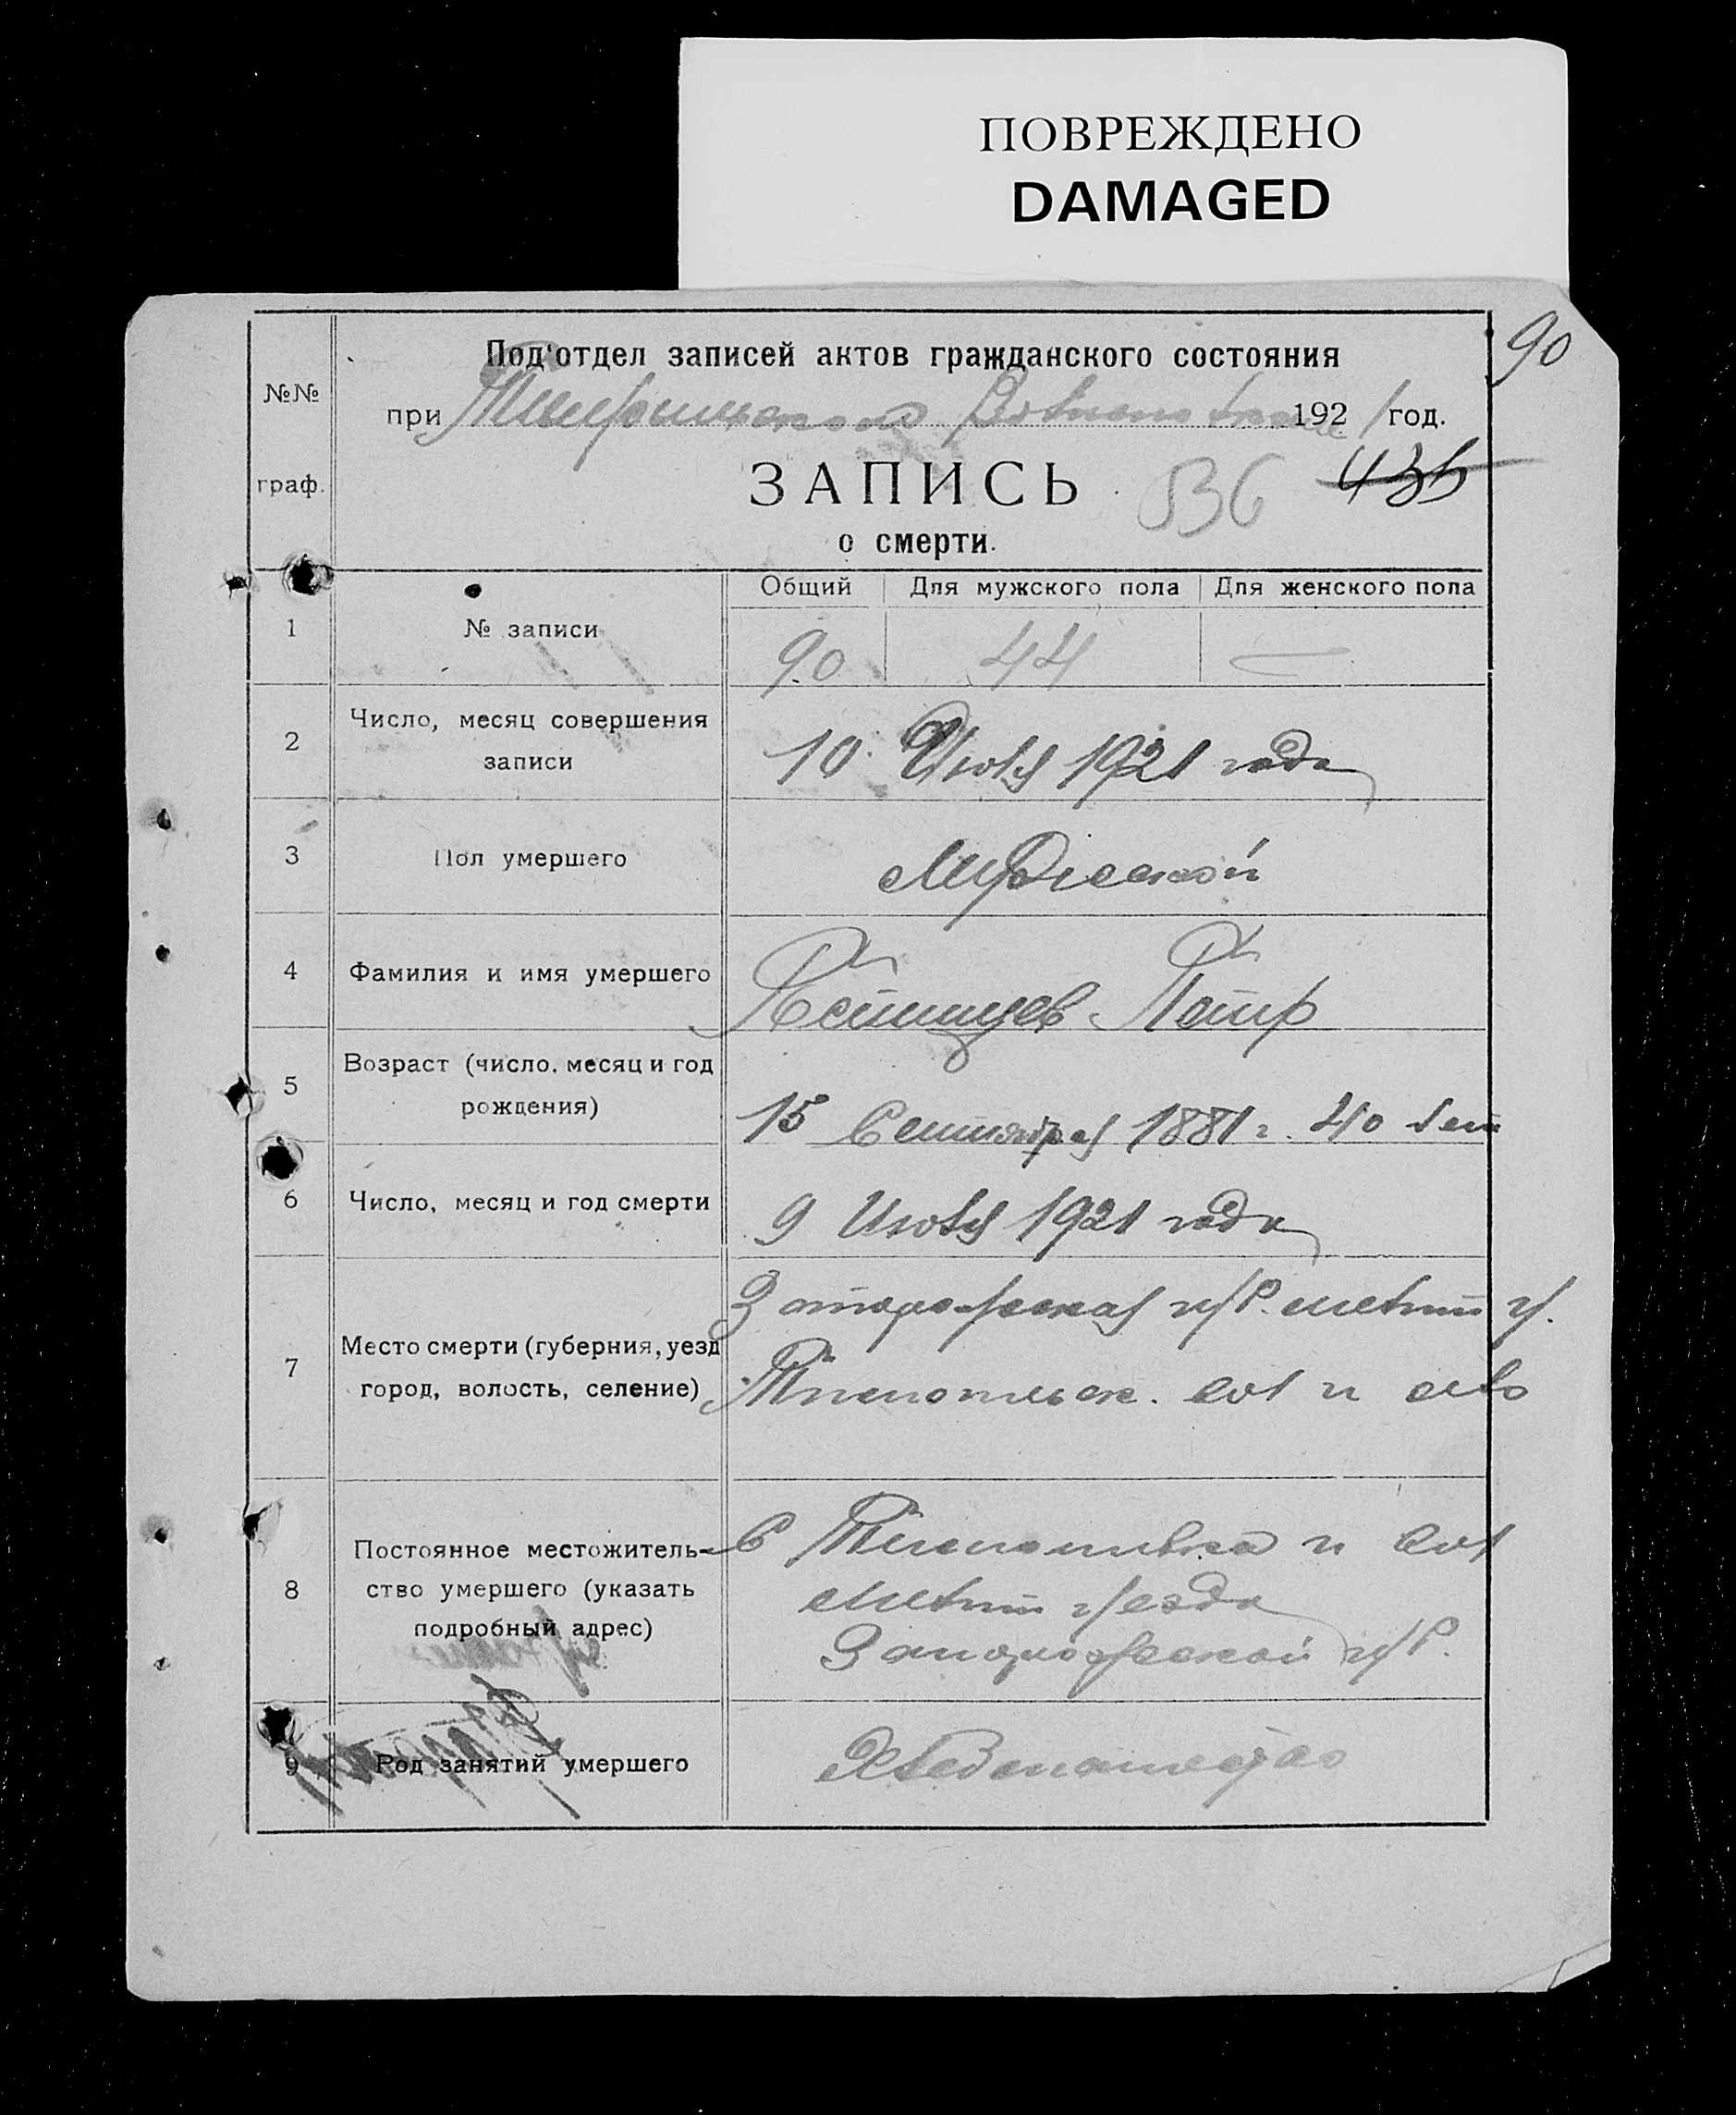 ПОВРЕЖДЕНО
DAMAGED
90
№№ граф.
Под'отдел записей актов гражданского состояния
при 1921 год.
ЗАПИСЬ 436
о смерти.
Общий Для мужского пола Для женского пола
1 № записи 90 44 —
2 Число, месяц совершения
записи 10 Июля 1921 года
3 Пол умершего Мужской
4 Фамилия и имя умершего Петр
5 Возраст (число, месяц и год
рождения) 15 Сентября 1881 г. 40 лет
6 Число, месяц и год смерти 9 Июля 1921 года
7 Место смерти (губерния, уезд
город, волость, селение)
Запорожская губ. мелит у.
вол и
8 Постоянное местожитель-
ство умершего (указать
подробный адрес)
С и вол
мелит уезда
Запорожской губ.
9 Род занятий умершего Хлебопашество